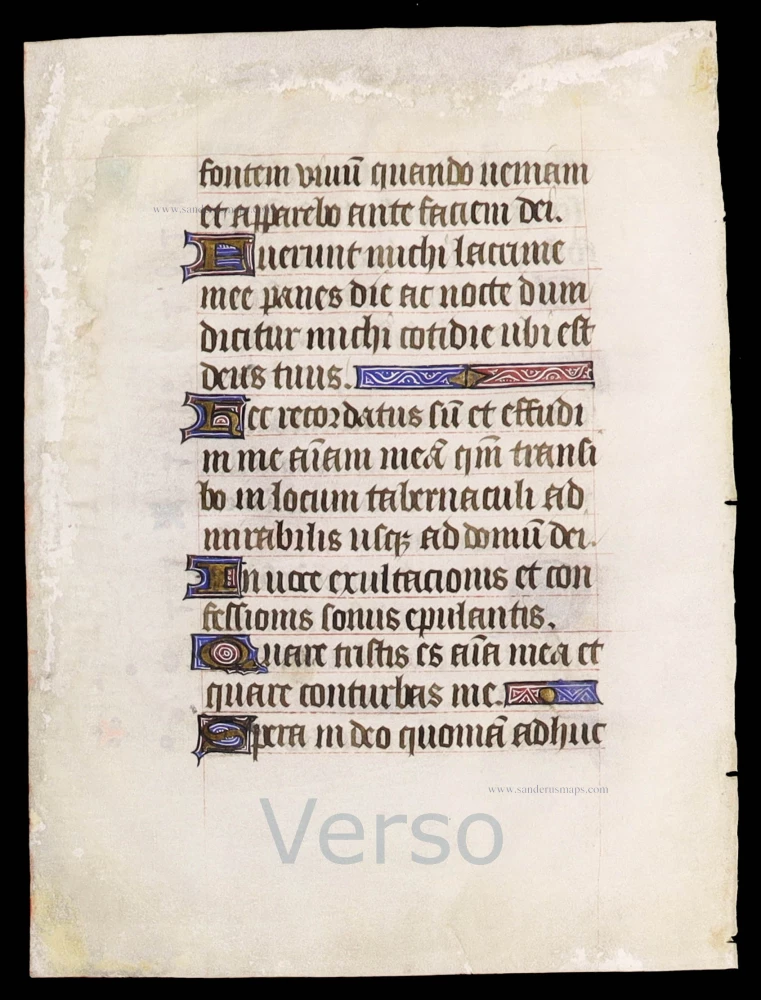 fontem viuū quando ueniam
et apparebo ante faciem dei.
www.sanderusmaps.com
Fuerunt michi lacrime
mee panes die ac nocte dum
dicitur michi cotidie ubi est
deus tuus.
Hec recordatus sū et effudi
in me aīam meā qm̄ transi
bo in locum tabernaculi ad
mirabilis usqꝫ ad domū dei.
In uoce exultacionis et con
fessionis sonus epulantis.
Quare tristis es aīa mea et
quare conturbas me.
Spera in deo quoniā adhuc
www.sanderusmaps.com
Verso